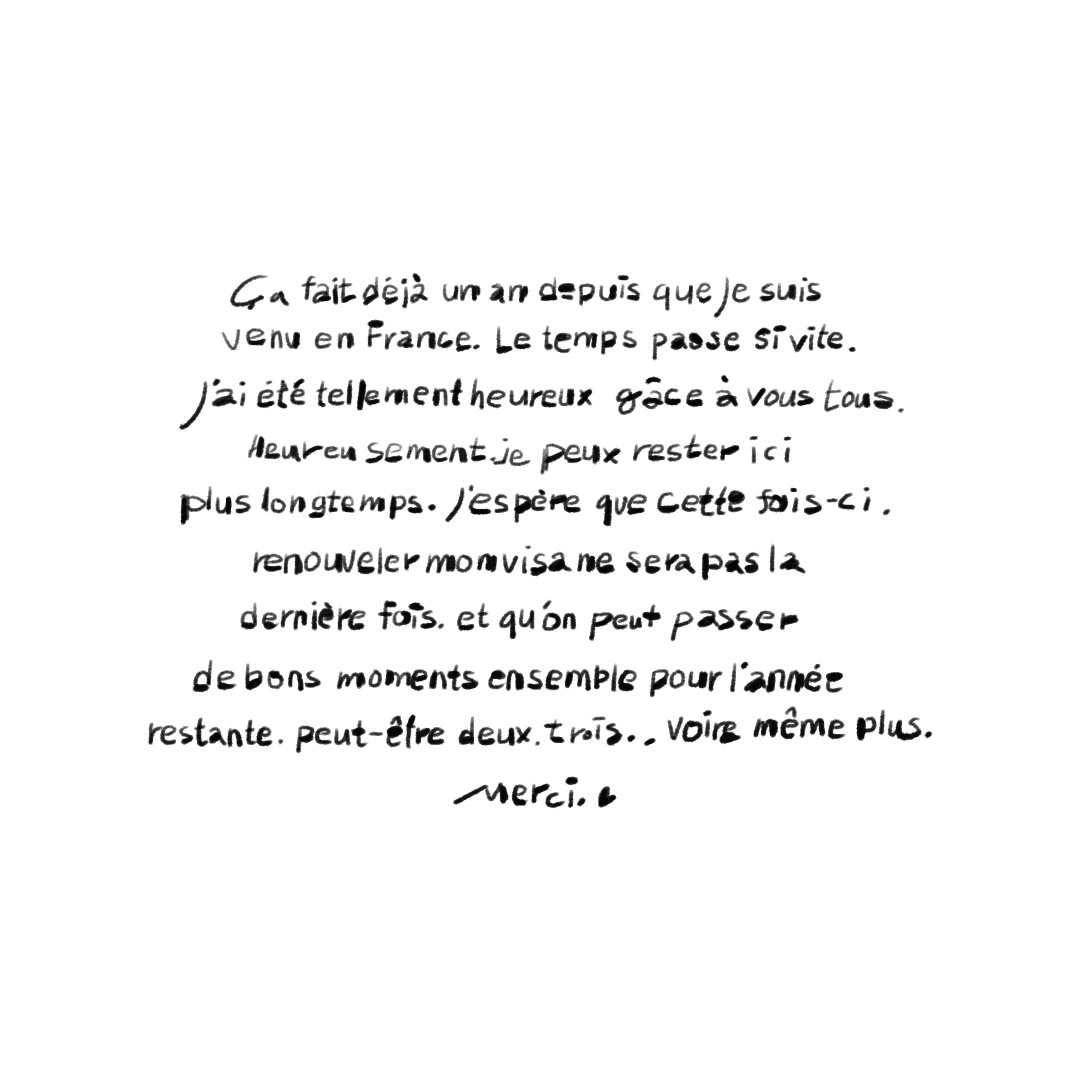 Ça fait déjà un an depuis que je suis
venu en France. Le temps passe si vite.
J'ai été tellement heureux grâce à vous tous.
Heureusement. je peux rester ici
plus longtemps. J'espère que cette fois-ci.
renouveler mon visa ne sera pas la
dernière fois. et qu'on peut passer
de bons moments ensemble pour l'année
restante. peut-être deux. trois.. voire même plus.
Merci.